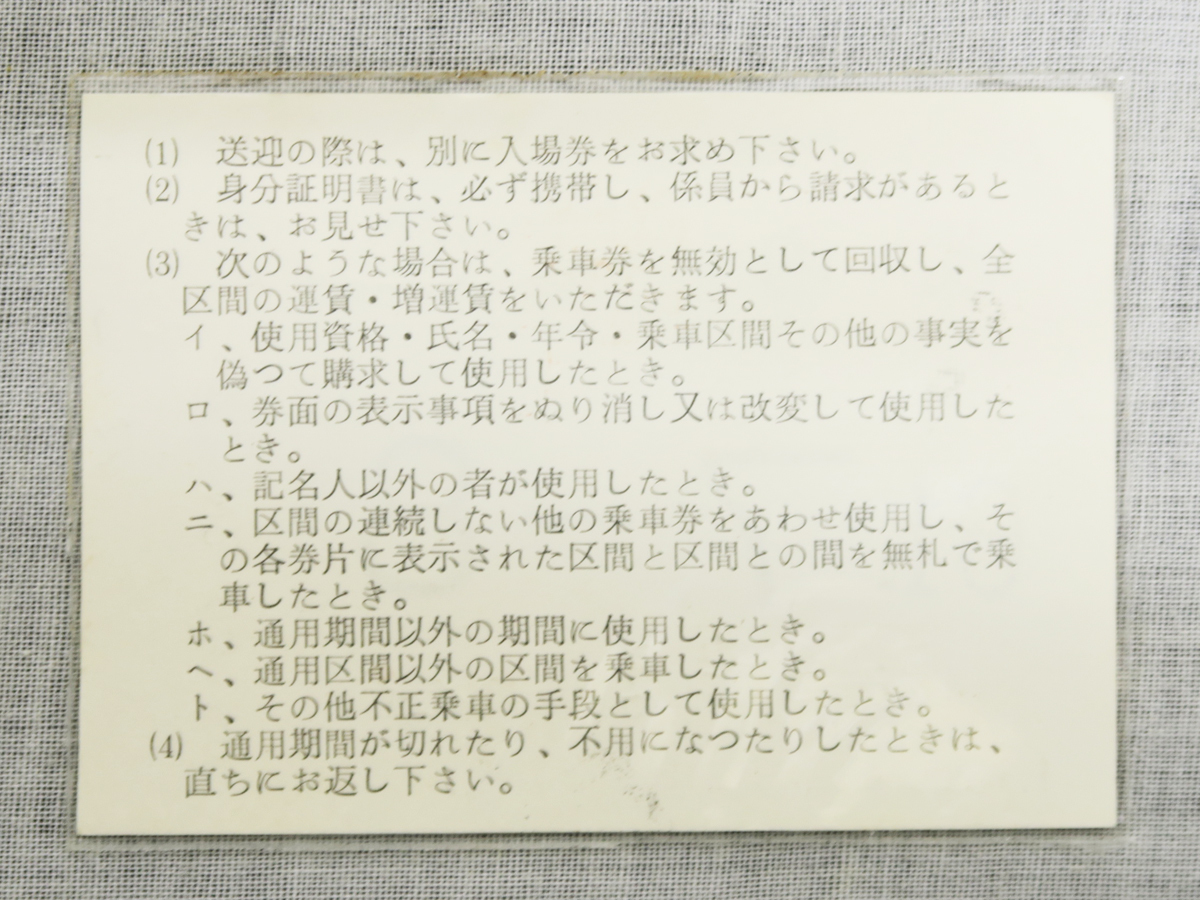 (1) 送迎の際は、別に入場券をお求め下さい。
(2) 身分証明書は、必ず携帯し、係員から請求があると
きは、お見せ下さい。
(3) 次のような場合は、乗車券を無効として回収し、全
区間の運賃・増運賃をいただきます。
イ、使用資格・氏名・年令・乗車区間その他の事実を
偽つて購求して使用したとき。
ロ、券面の表示事項をぬり消し又は改変して使用した
とき。
ハ、記名人以外の者が使用したとき。
ニ、区間の連続しない他の乗車券をあわせ使用し、そ
の各券片に表示された区間と区間との間を無札で乗
車したとき。
ホ、通用期間以外の期間に使用したとき。
ヘ、通用区間以外の区間を乗車したとき。
ト、その他不正乗車の手段として使用したとき。
(4) 通用期間が切れたり、不用になつたりしたときは、
直ちにお返し下さい。